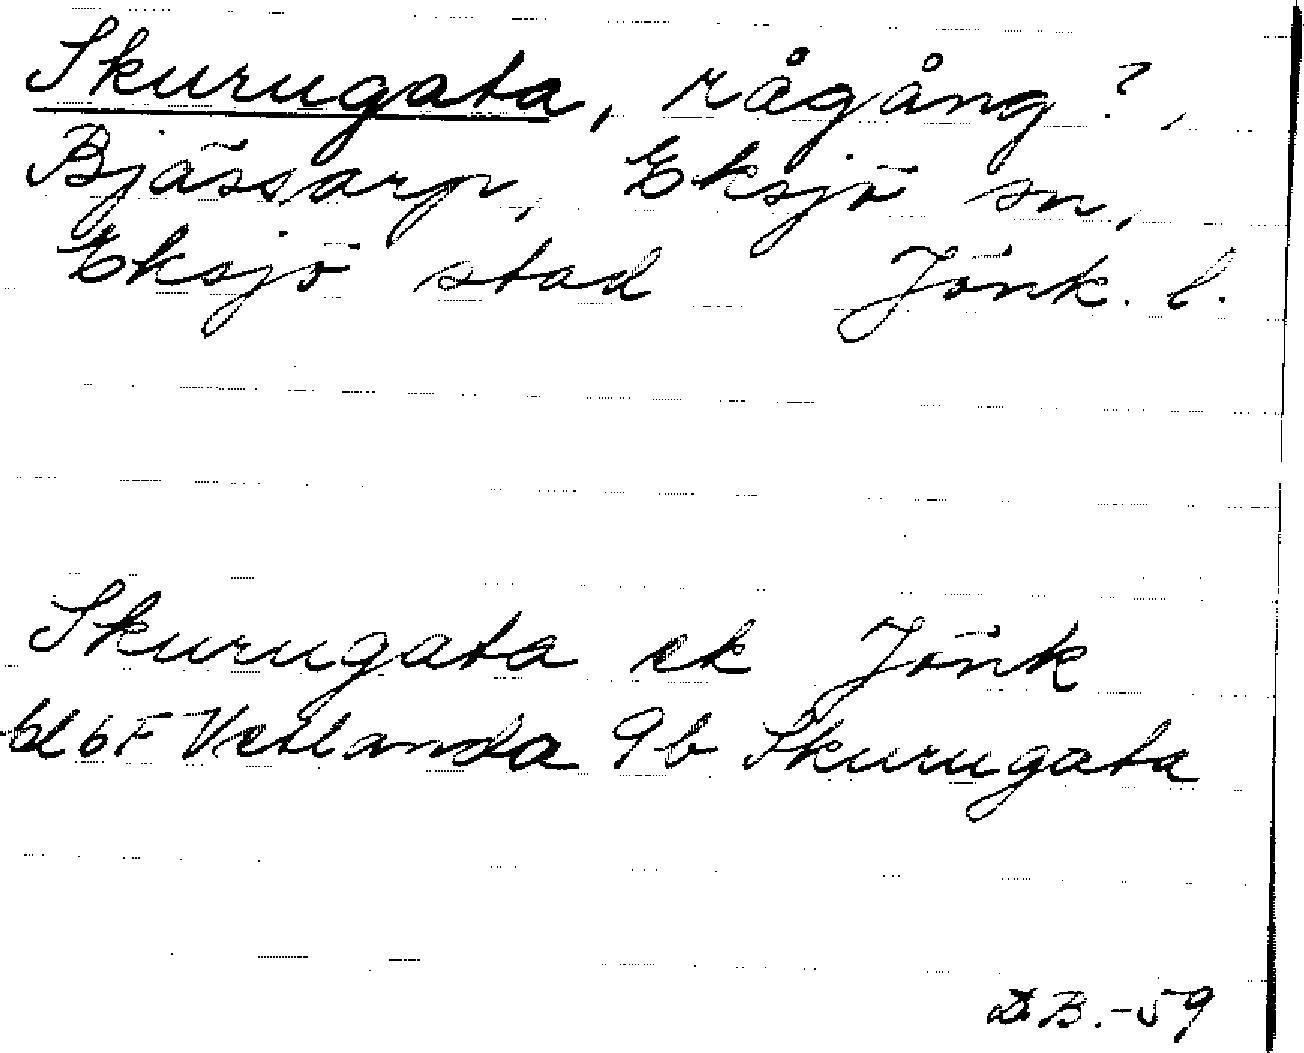 Skurugata, rågång?,
Bjässarp, Eksjö sn,
Eksjö stad Jönk. l.
Skurugata ek Jönk
bl 6F Vetlanda 9b Skurugata
D.B.-59